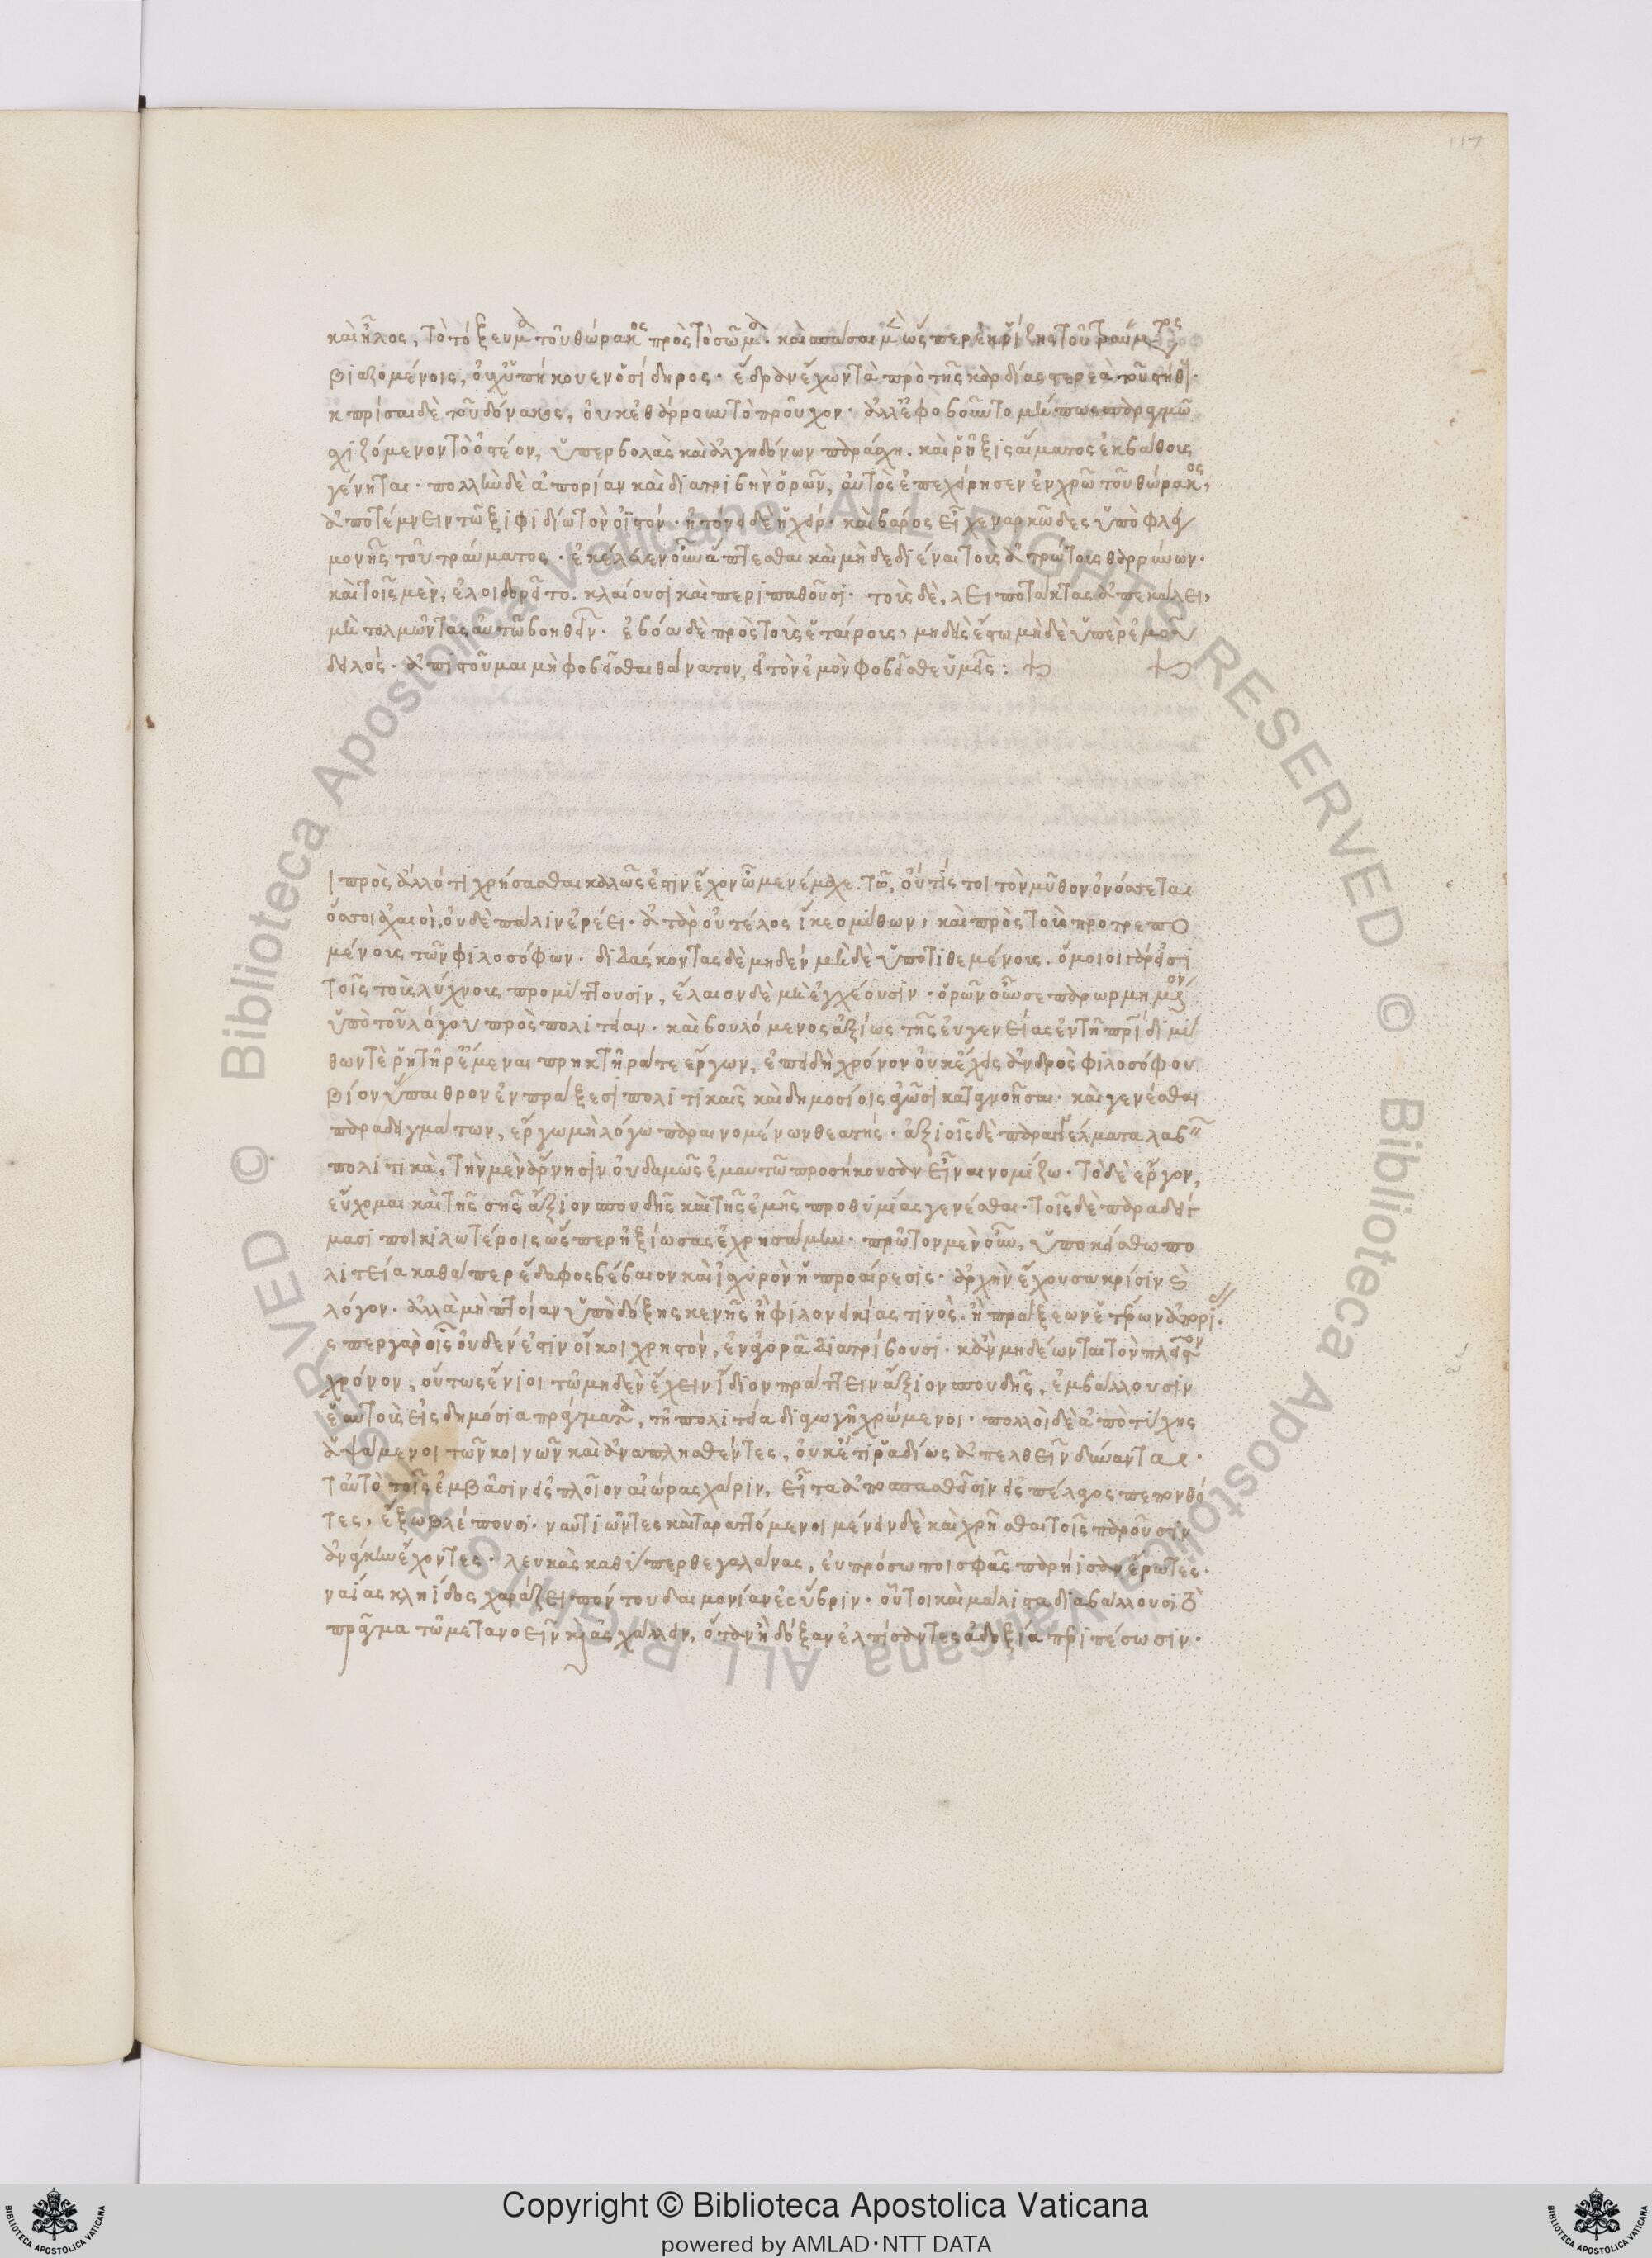 117
καὶ ἧλος, τὸ τόξευμα τοῦ θώρακος πρὸς τὸ σῶμα. καὶ σπάσαι μὲν ὥσπερ ἐκ ῥίζης τοῦ τραύματος
βιαζομένοις, οὐχ ὑπήκουεν ὁ σίδηρος. ἕδραν ἔχων τὰ πρὸ τῆς καρδίας στερεὰ τοῦ στήθους.
ἐκπρίσαι δὲ τοῦ δόνακος, οὐκ ἐθάρρουν τὸ προῦχον. ἀλλ' ἐφοβοῦντο μήπως σπαραγμῷ
σχιζόμενον τὸ ὀστέον, ὑπερβολὰς καὶ ἀλγηδόνων παράσχη. καὶ ῥῆξις αἵματος ἐκ βάθους
γένηται. πολλὴν δὲ ἀπορίαν καὶ διατριβὴν ὁρῶν, αὐτὸς ἐπεχείρησεν ἐν χρῷ τοῦ θώρακος,
ἀποτέμνειν τῷ ξιφιδίω τὸν ὀϊστόν. ἠτόνει δὲ ἡ χείρ. καὶ βάρος εἶχε ναρκῶδες ὑπὸ φλεγ
μονῆς τοῦ τραύματος. ἐκέλευεν οὖν ἅπτεσθαι καὶ μὴ δεδιέναι τοὺς ἀτρώτους θαρρύνων.
καὶ τοῖς μὲν, ἐλοιδορεῖτο. κλαίουσι καὶ περιπαθοῦσι. τοὺς δὲ, λειποτάκτας ἀπεκάλει,
μὴ τολμῶντας αὐτῷ βοηθεῖν. ἐβόα δὲ πρὸς τοὺς ἑταίρους, μηδεὶς ἔστω μηδὲ ὑπὲρ ἐμοῦ
δειλός. ἀπιστοῦμαι μὴ φοβεῖσθαι θάνατον, εἰ τὸν ἐμὸν φοβεῖσθε ὑμεῖς:
πρὸς ἄλλό τι χρήσασθαι καλῶς ἐστὶν ἔχον ὦ μενέμαχε. τῶ, οὔτίς τοι τὸν μῦθον ὀνόσσεται
ὅσσοι ἀχαιοὶ. οὐδὲ πάλιν ἐρέει. ἀτὰρ οὐ τέλος ἵκεο μύθων, καὶ πρὸς τοὺς προτρεπο
μένους τῶν φιλοσόφων. διδάσκοντας δὲ μηδέν μὴδὲ ὑποτιθεμένους. ὅμοιοι γάρ εἰσι
τοῖς τοὺς λύχνους προμύττουσιν, ἔλαιον δὲ μὴ ἐγχέουσιν. ὁρῶν οὖν σε παρωρμημένον
ὑπὸ τοῦ λόγου πρὸς πολιτείαν. καὶ βουλόμενος ἀξίως τῆς εὐγενείας ἐν τῇ πατρίδι μύ
θων τὲ ῥητῆρ' ἔμεναι πρηκτῆρά τε ἔργων, ἐπειδὴ χρόνον οὐκ ἔχεις ἀνδρὸς φιλοσόφου
βίον ὕπαιθρον ἐν πράξεσι πολιτικαῖς καὶ δημοσίοις ἀγῶσι κατανοῆσαι. καὶ γενέσθαι
παραδειγμάτων, ἔργω μὴ λόγω περαινομένων θεατής. ἀξιοῖς δὲ παραγγέλματα λαβεῖν
πολιτικὰ, τὴν μὲν ἄρνησιν οὐδαμῶς ἐμαυτῷ προσήκουσαν εἶναι νομίζω. τὸ δὲ ἔργον,
εὔχομαι καὶ τῆς σῆς ἄξιον σπουδῆς καὶ τῆς ἐμῆς προθυμίας γενέσθαι. τοῖς δὲ παραδείγ
μασι ποικιλωτέροις ὥσπερ ἠξίωσας ἐχρησάμην. πρῶτον μὲν οὖν, ὑποκείσθω πο
λιτεία καθάπερ ἔδαφος βέβαιον καὶ ἰσχυρὸν ἡ προαίρεσις. ἀρχὴν ἔχουσα κρίσιν καὶ
λόγον. ἀλλὰ μὴ πτοίαν ὑπὸ δόξης κενῆς ἢ φιλονεικίας τινὸς. ἢ πράξεων ἑτέρων ἀπορί.
ὥσπερ γὰρ οἷς οὐδέν ἐστιν οἴκοι χρηστόν, ἐν ἀγορᾷ διατρίβουσι. κἂν μὴ δέωνται τὸν πλεῖστον
χρόνον, οὕτως ἔνιοι τῷ μηδὲν ἔχειν ἴδιον πράττειν ἄξιον σπουδῆς, ἐμβάλλουσιν
ἑαυτοὺς εἰς δημόσια πράγματα, τῇ πολιτεία διαγωγῇ χρώμενοι. πολλοὶ δὲ ἀπὸ τύχης
ἁψάμενοι τῶν κοινῶν καὶ ἀναπλησθέντες, οὐκ έτι ῥαδίως ἀπελθεῖν δύνανται.
ταὐτὸ τοῖς ἐμβᾶσιν εἰς πλοῖον αἰώρας χάριν, εἶτα ἀποσπασθεῖσιν εἰς πέλαγος πεπονθό
τες, ἔξω βλέπουσι. ναυτιῶντες καὶ ταραττόμενοι μένειν δὲ καὶ χρῆσθαι τοῖς παροῦσιν
ἀνάγκην ἔχοντες. λευκὰς καθύπερθε γαλάνας, εὐπρόσωποι σφᾶς παρήϊσαν ἔρωτες.
ναίας κληίδος χαράξει πόντου δαιμονίαν ἐς ὕβριν. οὗτοι καὶ μάλιστα διαβάλλουσι τὸ
πρᾶγμα τῷ μετανοεῖν καὶ ἀσχάλλειν, ὅταν ἢ δόξαν ἐλπίσαντες ἀδοξία περιπέσωσιν.
Copyright © Biblioteca Apostolica Vaticana
powered by AMLAD·NTT DATA